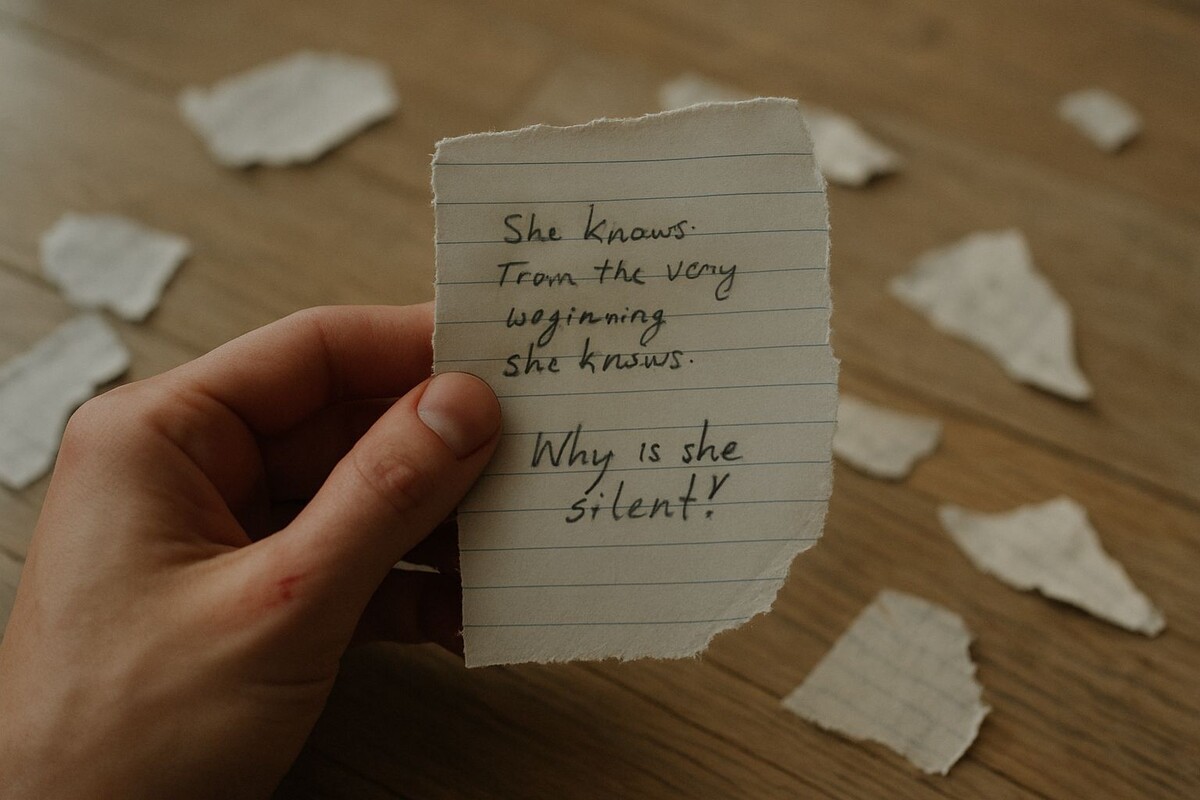 She knows.
Trom the very
woginning
she knsws.
Why is she
silent?